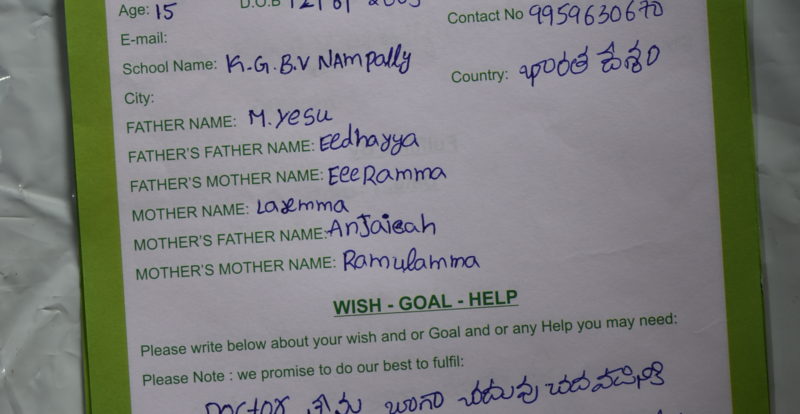 Age: 15 D.O.B
Contact No 9959630670
E-mail:
School Name: K.G.B.V NAmpally
Country: భారత దేశం
City:
FATHER NAME: M. Yesu
FATHER'S FATHER NAME: Eedhayya
FATHER'S MOTHER NAME: EeeRamma
MOTHER NAME: Laxmma
MOTHER'S FATHER NAME: Anjaieah
MOTHER'S MOTHER NAME: Ramulamma
WISH - GOAL - HELP
Please write below about your wish and or Goal and or any Help you may need:
Please Note : we promise to do our best to fulfil:
Doctor నేను బాగా చదువు